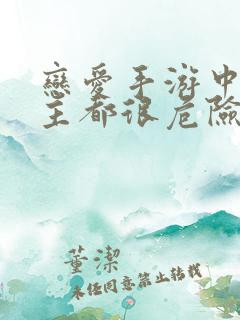 戀愛手游中
主都很危險
董潔
未经同意禁止转载